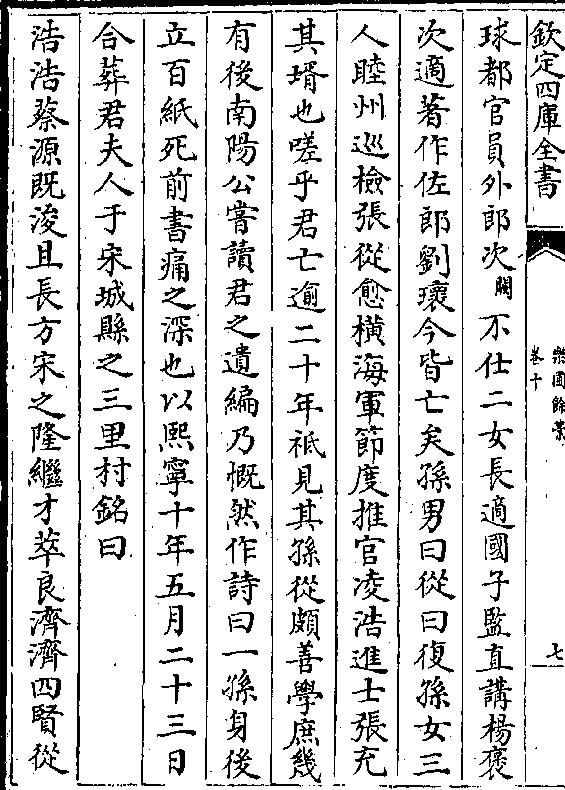 欽定四庫全書
樂圃餘藁
卷十
七
球都官員外郎次闕不仕二女長適國子監直講楊褒
次適著作佐郎劉瓌今皆亡矣孫男曰從曰復孫女三
人睦州巡檢張從愈橫海軍節度推官凌浩進士張充
其壻也嗟乎君亡逾二十年祗見其孫從頗善學庶幾
有後南陽公嘗讀君之遺編乃慨然作詩曰一孫身後
立百紙死前書痛之深也以熙寧十年五月二十三日
合葬君夫人于宋城縣之三里村銘曰
浩浩蔡源既浚且長方宋之隆繼才萃良濟濟四賢從